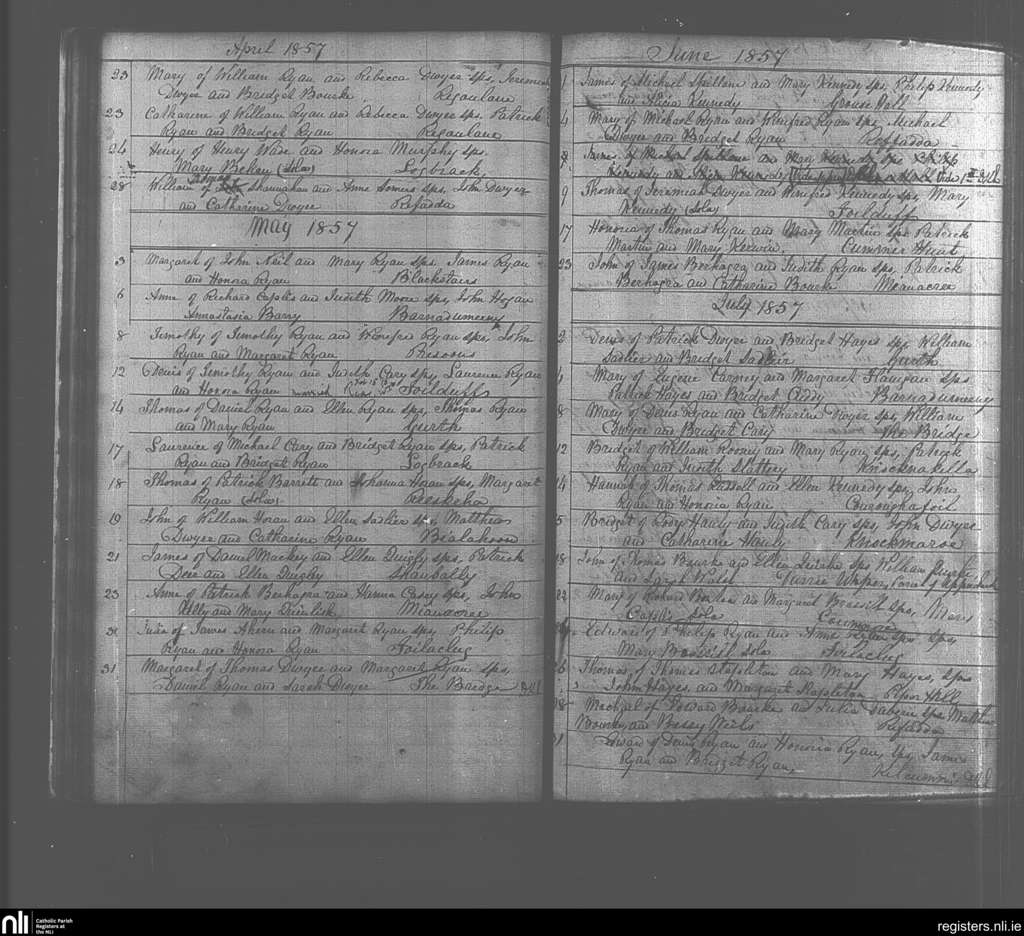 April 1857
23 Mary of William Ryan and Rebecca Dwyer sps, Jeremiah
Dwyer and Bridget Bourke Regaulane
23 Catharine of William Ryan and Rebecca Dwyer sps. Patrick
Ryan and Bridget Ryan Regaulane
24 Henry of Henry Wade and Honora Murphy sps.
Mary (Sola) Logbrack,
28 William of Shanahan and Anne Somers sps, John Dwyer
and Catherine Dwyer Refadda
May 1857
3 Margaret of John Neil and Mary Ryan sps. James Ryan
and Honora Ryan Blackstairs
6 Anne of Richard Capliss and Judith Moore sps, John Hogan
Annastasia Barry Barnadumeeny
8 Timothy of Timothy Ryan and Winefred Ryan sps. John
Ryan and Margaret Ryan
12 Denis of Timothy Ryan and Judith Cary sps, Laurence Ryan
and Honora Ryan Foilduff
14 Thomas of Daniel Ryan and Ellen Ryan sps, Thomas Ryan
and Mary Ryan Gurth
17 Laurence of Michael Cary and Bridget Ryan sps, Patrick
Ryan and Bridget Ryan Logbrack
18 Thomas of Patrick Barrett and Johanna Hogan sps, Margaret
Ryan (Sola)
19 John of William Horan and Ellen Sadlier sps, Matthew
Dwyer and Catharine Ryan Bealahoon
21 James of Daniel Mackey and Ellen Quigly sps, Patrick
Dee and Ellen Quigley Shanbally
23 Anne of Patrick Berhagra and Hanna Casey sps, John
Kelly and Mary Meanacree
31 Julia of James Ahern and Margaret Ryan sps, Philip
Ryan and Honora Ryan Foilaclug
31 Margaret of Thomas Dwyer and Margaret Ryan sps,
Daniel Ryan and Sarah Dwyer The Bridge
June 1857
1 James of Michael Spillane and Mary Kennedy sps, Philip Kennedy
and Alicia Kennedy Grouse Hall
4 Mary of Michael Ryan and Winifred Ryan sps. Michael
Dwyer and Bridget Ryan Reffadda
James of Michael Spillane and Mary Kennedy sps Philip
Kennedy and Kennedy
9 Thomas of Jeremiah Dwyer and Winifred Kennedy sps, Mary
Kennedy (Sola) Foilduff
17 Honoria of Thomas Ryan and Mary Martin sps Patrick
Martin and Mary Kerwin. Cummer
23 John of James Berhagra and Judith Ryan sps, Patrick
Berhagra and Catharine Bourke Meanacree
July 1857
2 Denis of Patrick Dwyer and Bridget Hayes sps, William
Sadlier and Bridget Sadlier Gurth
4 Mary of Eugene Carney and Margaret Flanigan sps
Patrick Hayes and Bridget Barnadumeeny
8 Mary of Denis Ryan and Catharine Dwyer sps, William
Dwyer and Bridget Cary The Bridge
12 Bridget of William Rooney and Mary Ryan sps, Patrick
Ryan and Judith Slattery Knocknakella
14 Hannah of Thomas Russell and Ellen Kennedy sps, John
Ryan and Honoria Ryan Couraghafoil
5 Bridget of Rody Hanly and Judith Cary sps, John Dwyer
and Catharine Hanly Knockmaroe
18 John of Thomas Bourke and Ellen sps William
and Sarah Walsh
22 Mary of and Margaret sps, Mary
Capliss Sola
Edward of Philip Ryan and Anne Ryan sps,
Mary Sola Foilaclug
26 Thomas of Thomas Stapleton and Mary Hayes, sps
John Hayes, and Margaret Stapleton Piper Hill
28 Michael of Edward Bourke and Julia sps Matthew
Bourke and Bessy Reffadda
31 Edward of Denis Ryan and Honoria Ryan, sps, James
Ryan and Bridget Ryan,
nli
Catholic Parish
Registers at
the NLI
registers.nli.ie